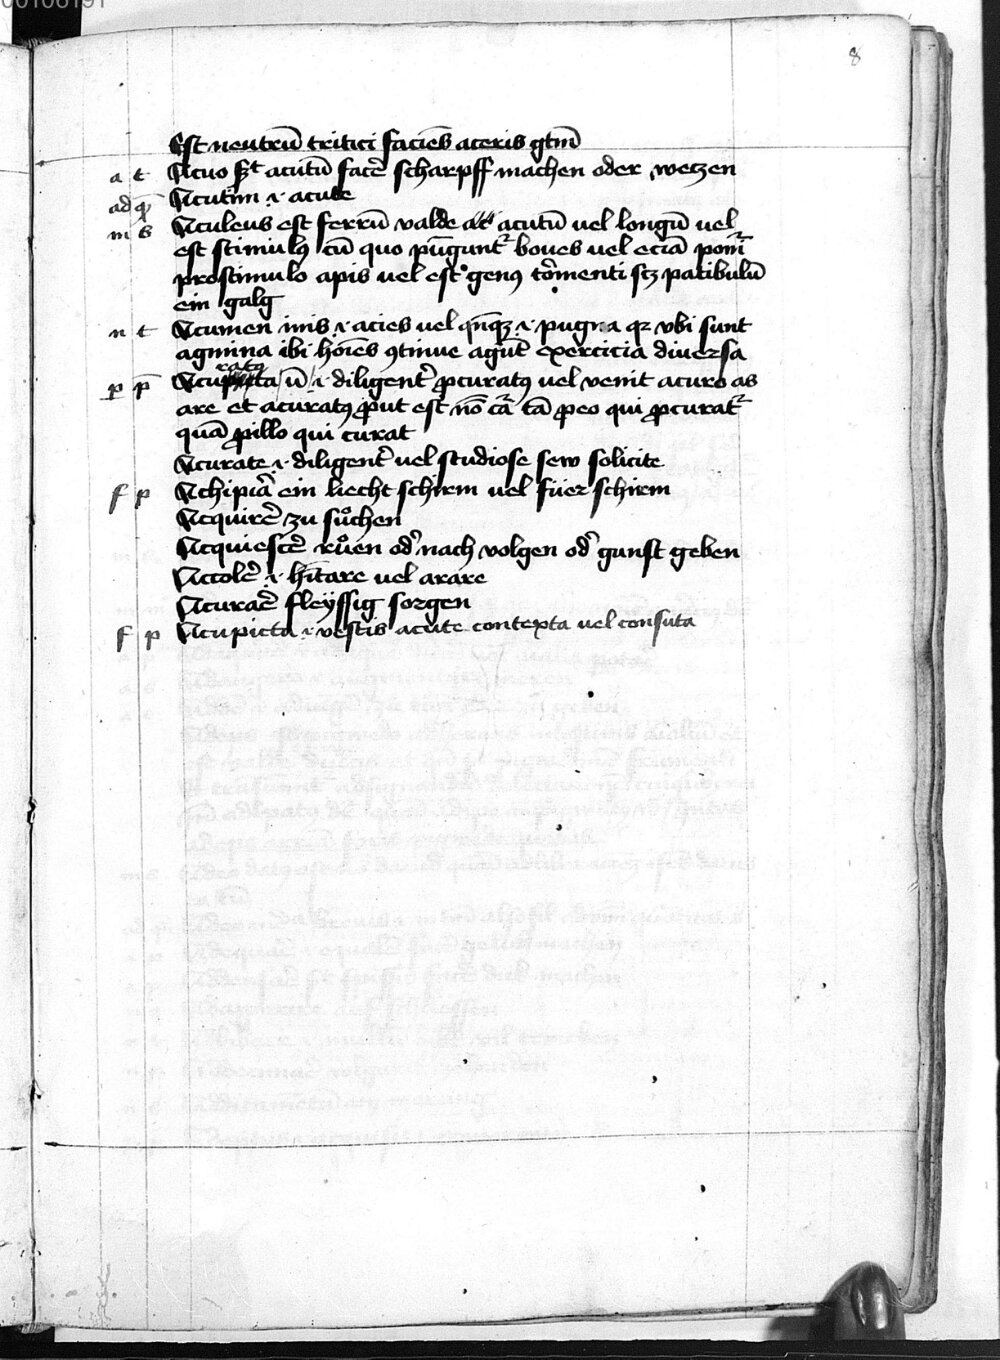 00106191
8
Est neutrū tritici faciēs aceris gtm̄
a t Acuo s̄t acutū facē scharpff machen oder wetzen
ad q̄ Acutim .i. acute
m s Aculeus est ferrū valde acutū vel longū vel
est stimulꝰ cū quo pūgunt᷑ boves vel eciā pom᷑
pro stimulo apis vel est genꝰ tormenti scz patibulū
ein galg
n t Acumen inis .i. acies vel .i. pugna qꝛ vbi sunt
agmina ibi hoīes ꝯtinue agūt exercicia diversa
p p̄ Acuratꝰ .i. diligent᷑ ꝓcuratꝰ vel venit acuro as
are et acuratꝰ ꝓut est nō cā tā ꝓeo qui ꝓcurat᷑
quā ꝓillo qui curat
Acurate .i. diligent᷑ vel studiose sew solicite
f p Achipiā ein liecht schirm vel füer schirm
Acquirē zu sůchen
Acquiescē růen od᷑ nach volgen od᷑ gunst geben
Accolē .i. hītare vel arare
Acuraē fleyssig sorgen
f p Acupicta .i. vestis acute contexta vel consuta